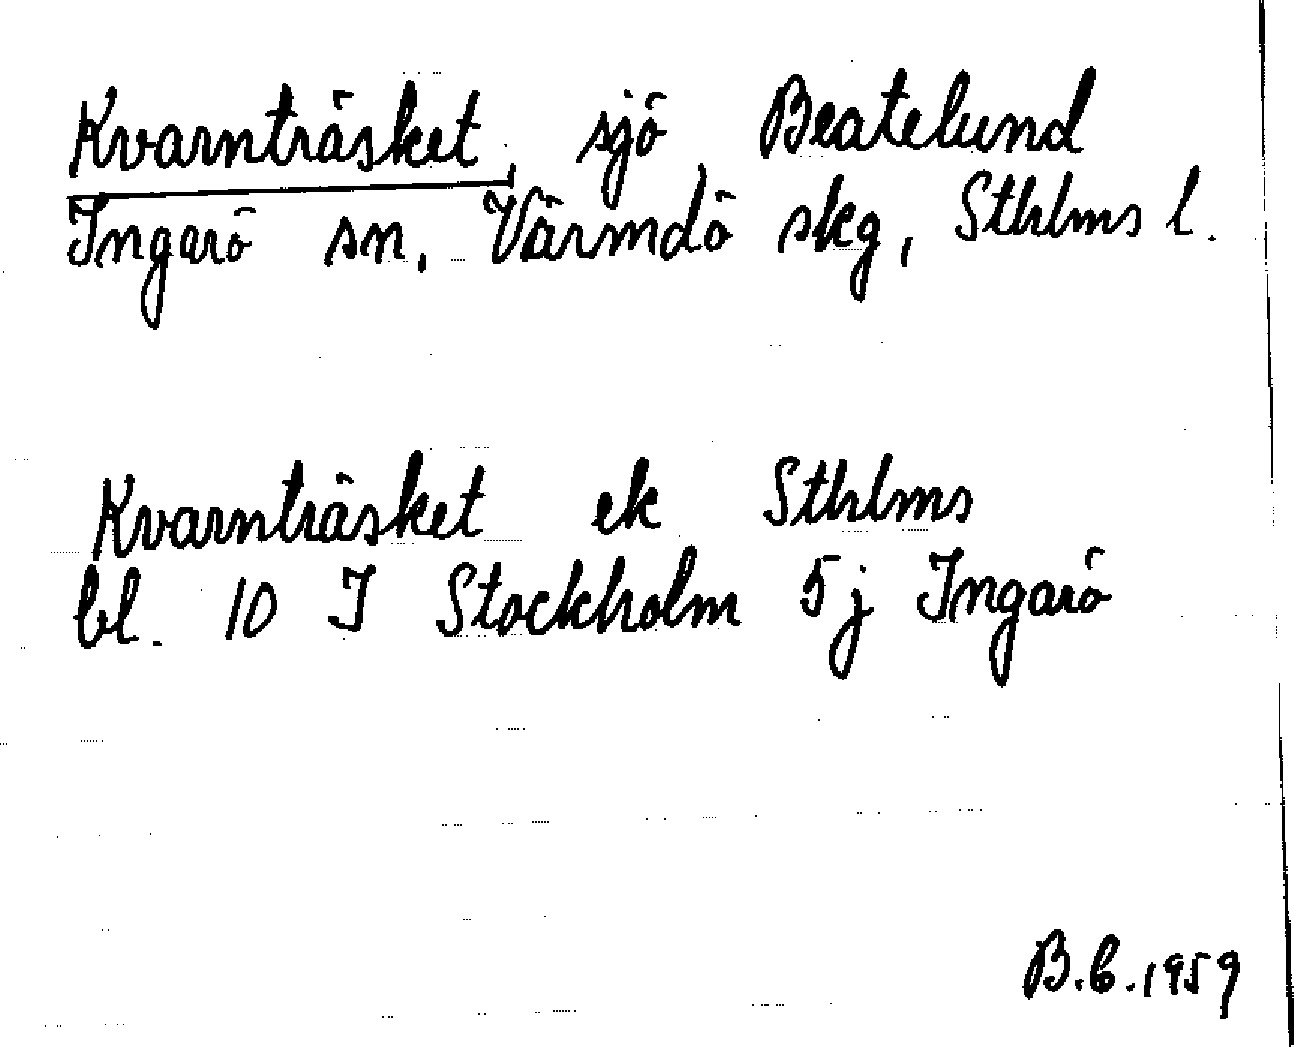 Kvarnträsket, sjö, Beatelund
Ingarö sn, Värmdö skg, Sthlms l.
Kvarnträsket ek Sthlms
bl. 10 I Stockholm 5j Ingarö
B.C.1959